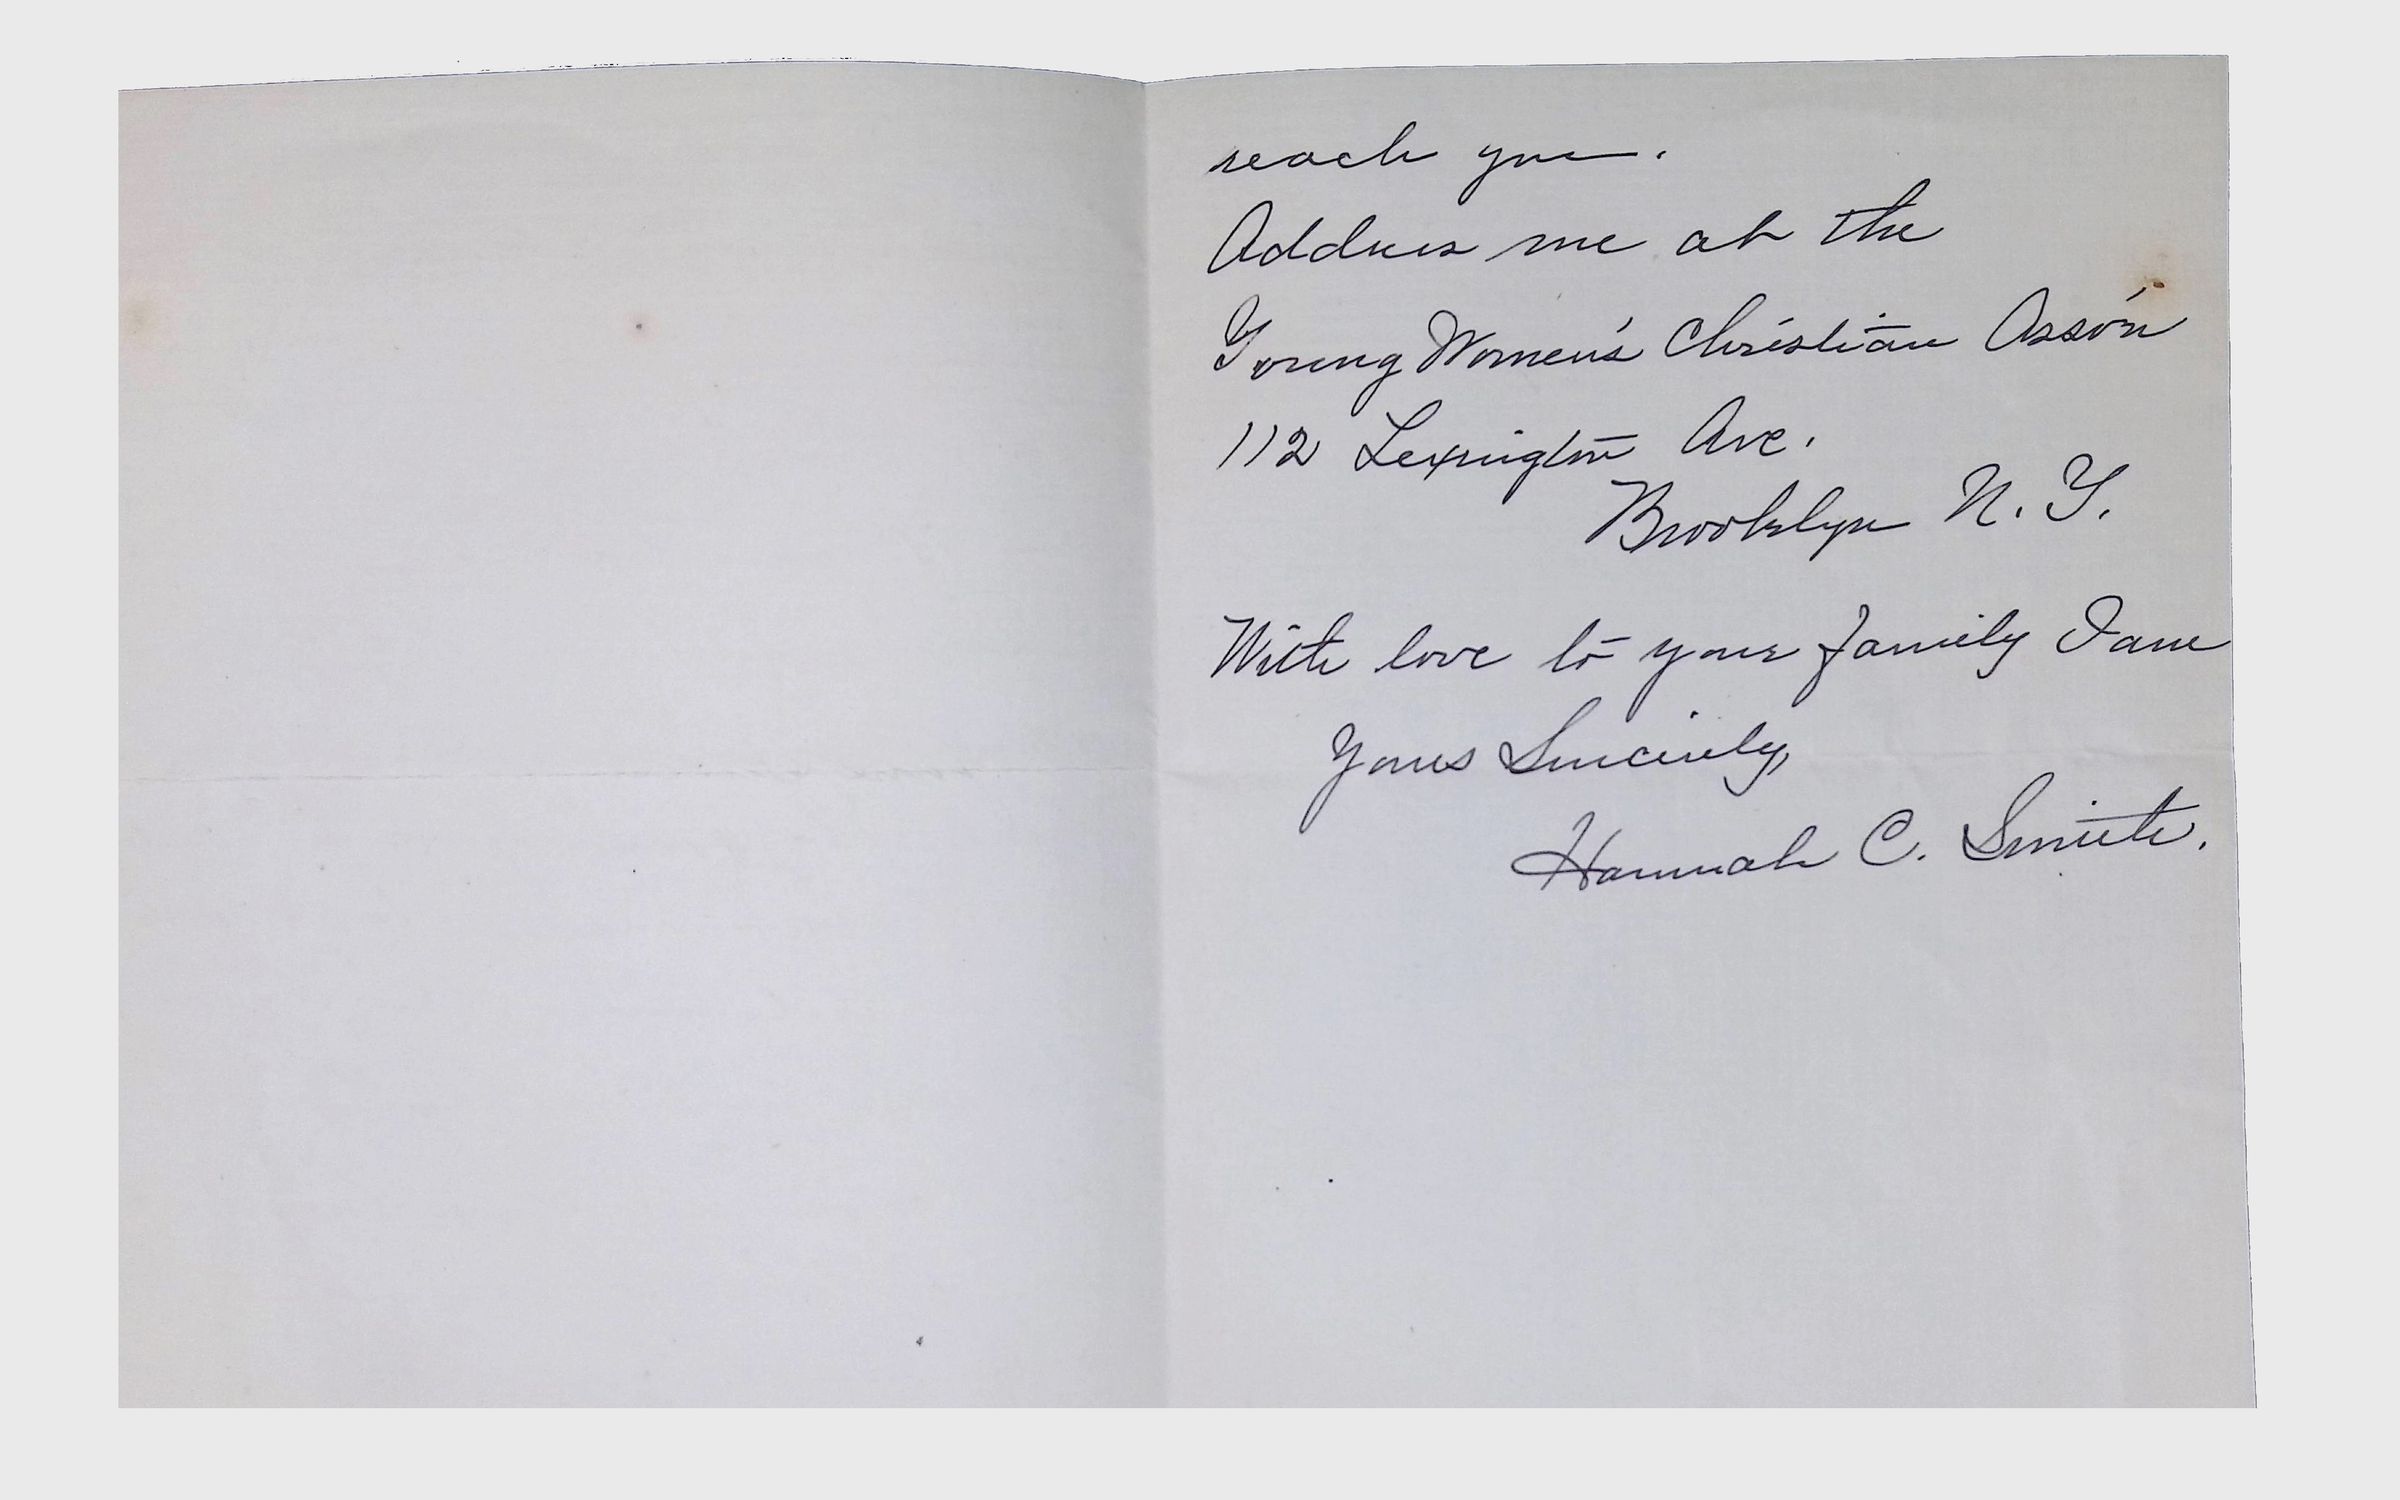 reach you.
Address me at the
Young Women's Christian Ass'o'n
112 Lexington Ave.
Brooklyn N. Y.
With love to your family I am
Yours Sincerely,
Hannah C. Smith.